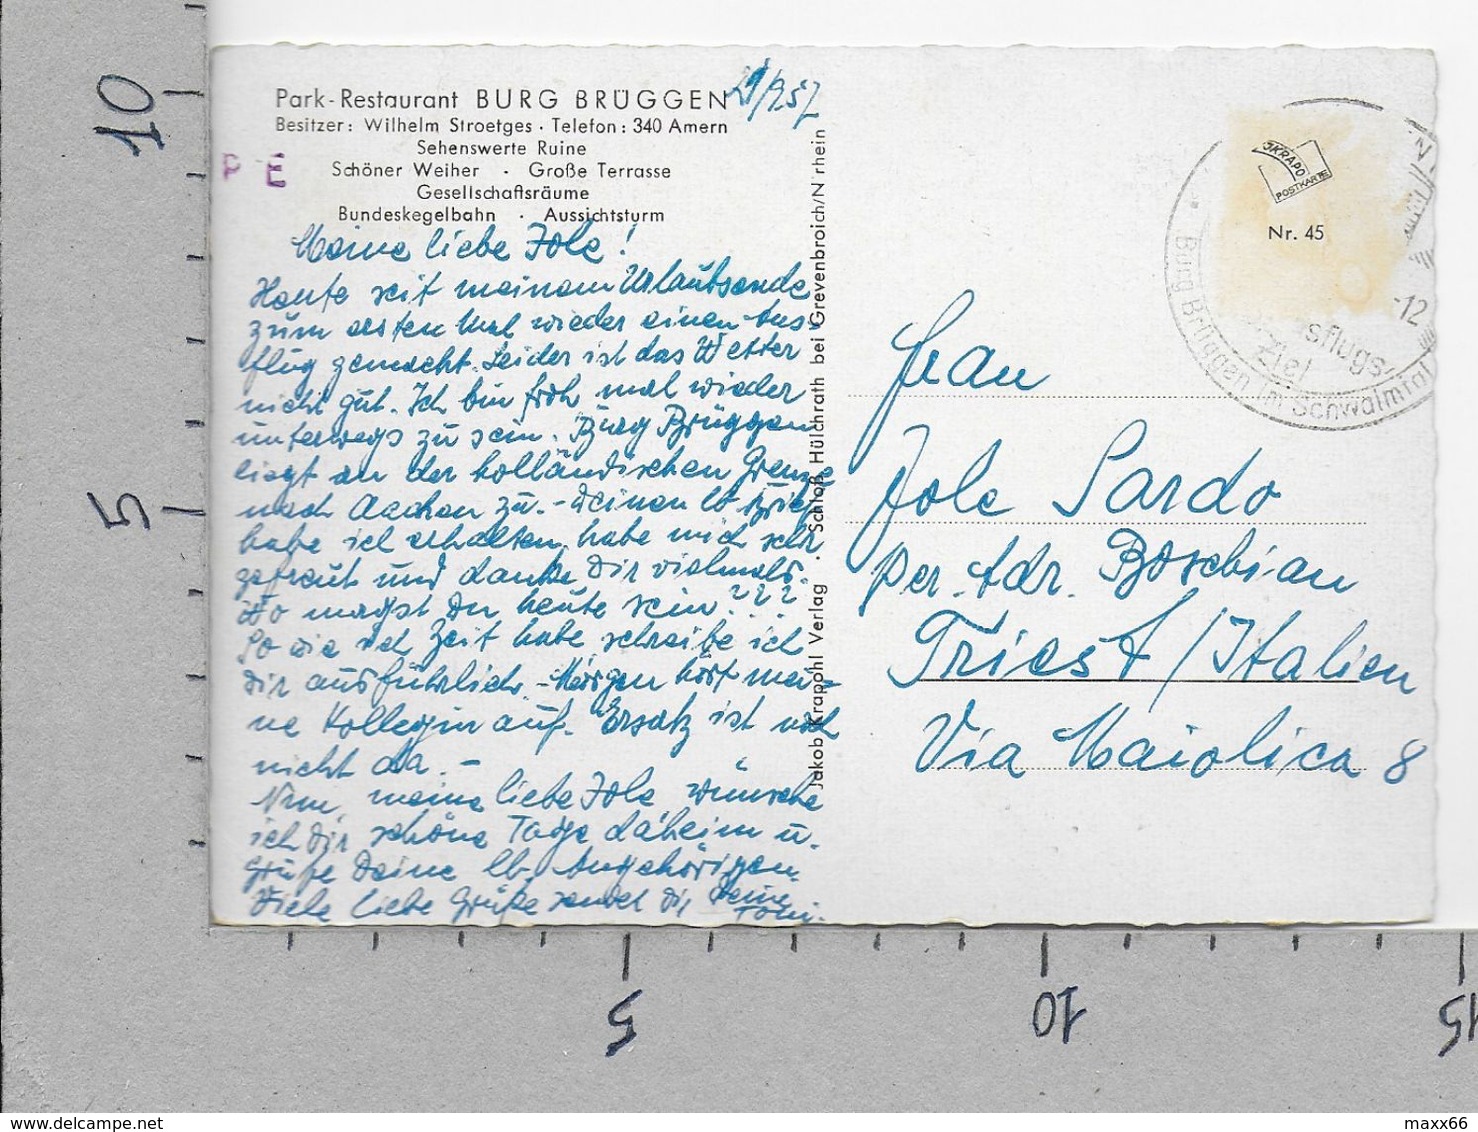 Park-Restaurant BURG BRÜGGEN
Besitzer: Wilhelm Stroetges · Telefon: 340 Amern
Sehenswerte Ruine
Schöner Weiher · Große Terrasse
Gesellschaftsräume
Bundeskegelbahn · Aussichtsturm
P E
Meine liebe Jole!
Heute seit meinem Urlaubsende
zum ersten Mal wieder einen Aus-
flug gemacht. Leider ist das Wetter
nicht gut. Ich bin froh mal wieder
unterwegs zu sein. Burg Brüggen
liegt an der holländischen Grenze
nach Aachen zu. - Deinen lb Brief
habe ich erhalten, habe mich sehr
gefreut und danke Dir vielmals.
Wo magst Du heute sein???
So wie ich Zeit habe schreibe ich
Dir ausführlich. - Morgen hört mei-
ne Kollegin auf. Ersatz ist noch
nicht da. -
Nun, meine liebe Jole, wünsche
ich Dir schöne Tage daheim u.
grüße Deine lb. Angehörigen.
Viele liebe Grüße sendet Dir Deine
Toni.
Jakob Krapohl Verlag · Schloß Hülchrath bei Grevenbroich/N'rhein
JKRAPO
POSTKARTE
Nr. 45
-12
Ausflugs-
Ziel
Burg Brüggen im Schwalmtal
Frau
Jole Sardo
per Adr. Boschian
Triest / Italien
Via Maiolica 8
10
5
5
10
15
delcampe.net
maxx66